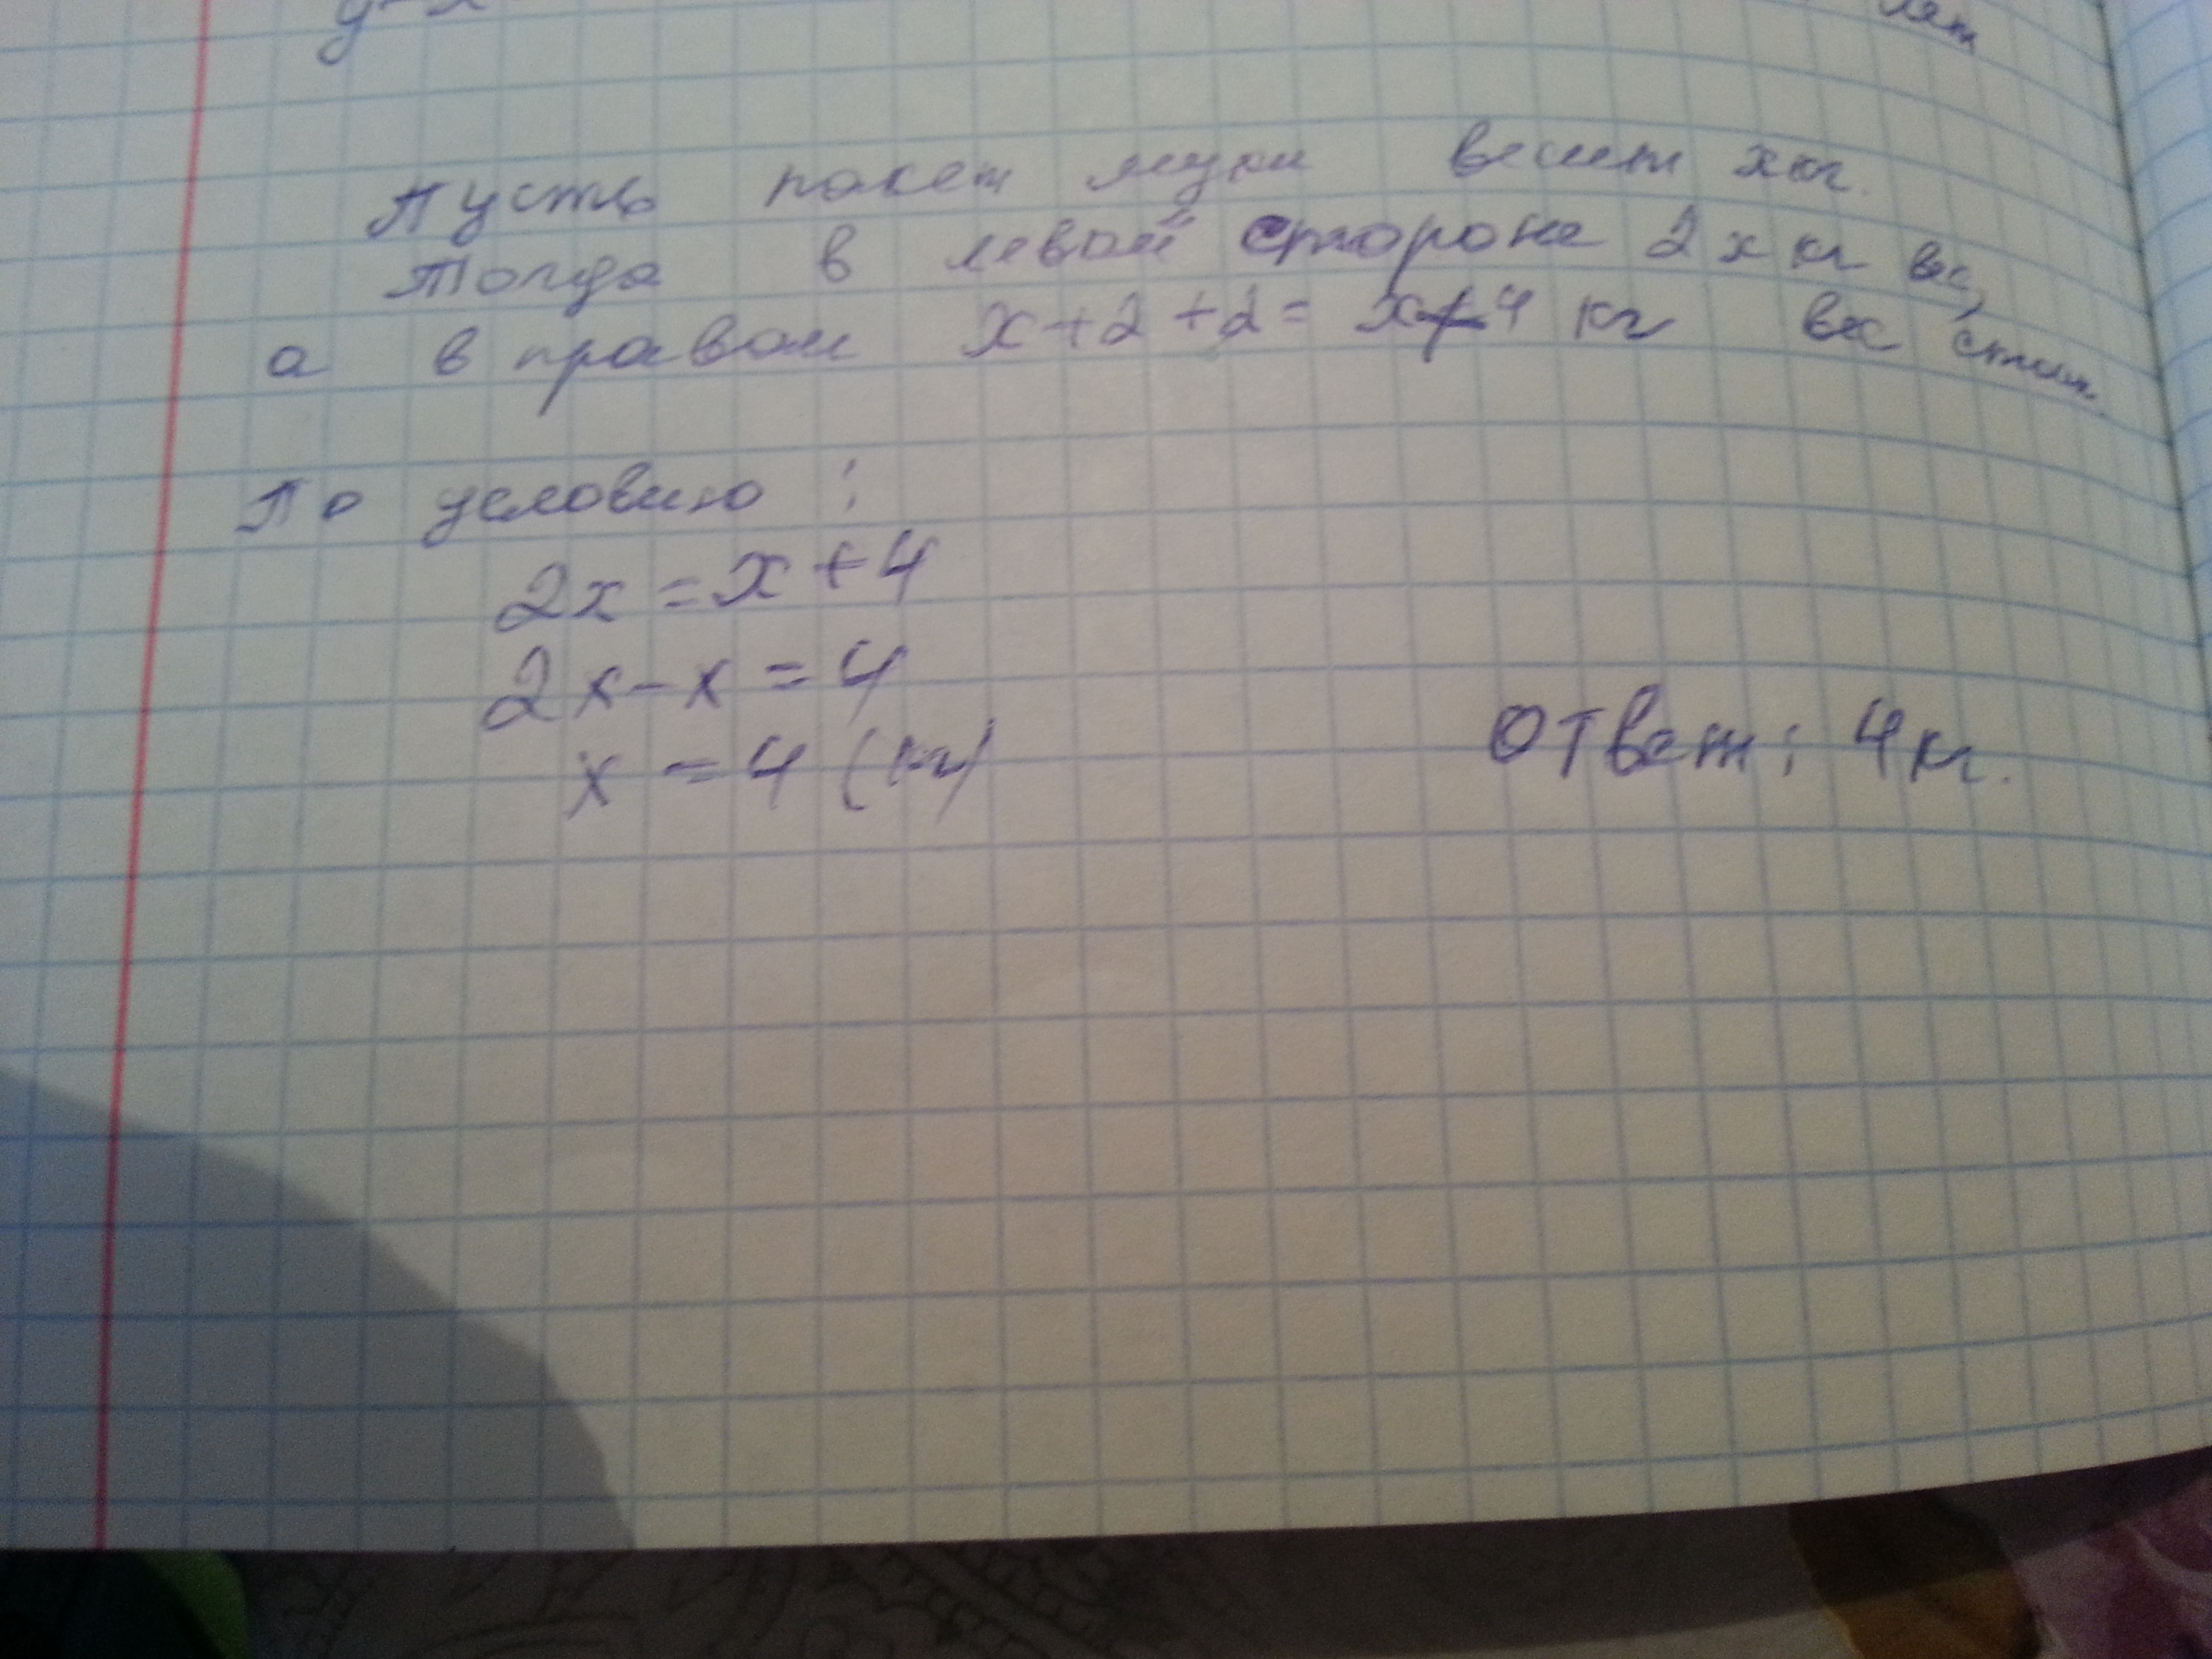 у = х
Пусть пакет муки весит х кг.
Тогда в левой стороне 2х кг вес,
а в правой х+2+2= х+4 кг вес
По условию :
2х = х + 4
2х - х = 4
х = 4 (кг)
Ответ: 4 кг.